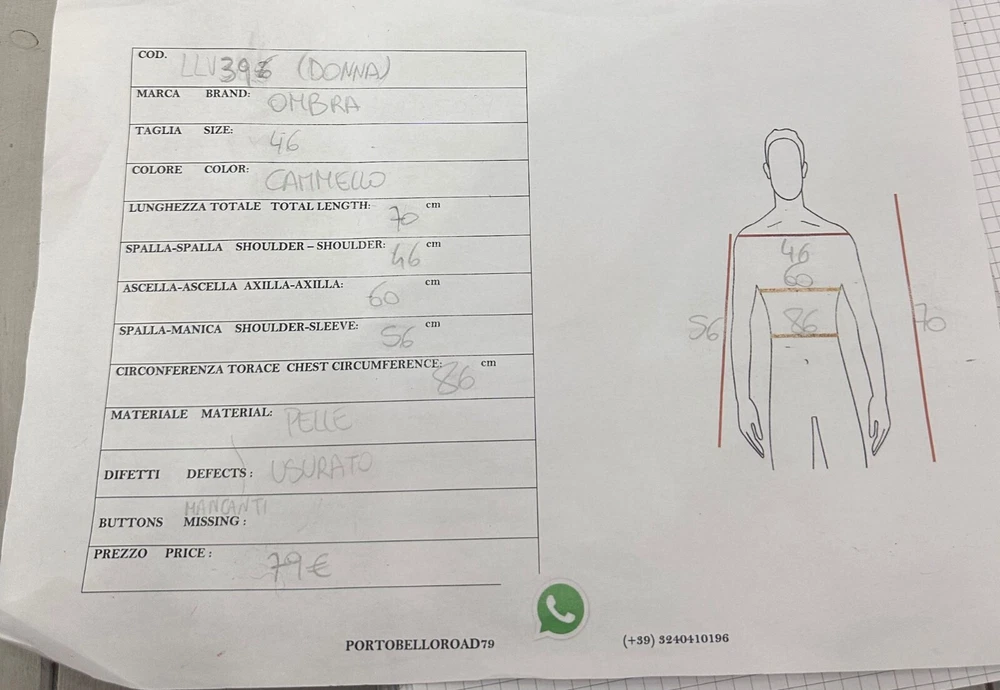 COD. LLV396 (DONNA)
MARCA BRAND: OMBRA
TAGLIA SIZE: 46
COLORE COLOR: CAMMELLO
LUNGHEZZA TOTALE TOTAL LENGTH: 70 cm
SPALLA-SPALLA SHOULDER – SHOULDER: 46 cm
ASCELLA-ASCELLA AXILLA-AXILLA: 60 cm
SPALLA-MANICA SHOULDER-SLEEVE: 56 cm
CIRCONFERENZA TORACE CHEST CIRCUMFERENCE: 86 cm
MATERIALE MATERIAL: PELLE
DIFETTI DEFECTS: USURATO
MANCANTI
BUTTONS MISSING:
PREZZO PRICE: 79€
46
60
86
56
70
PORTOBELLOROAD79
(+39) 3240410196